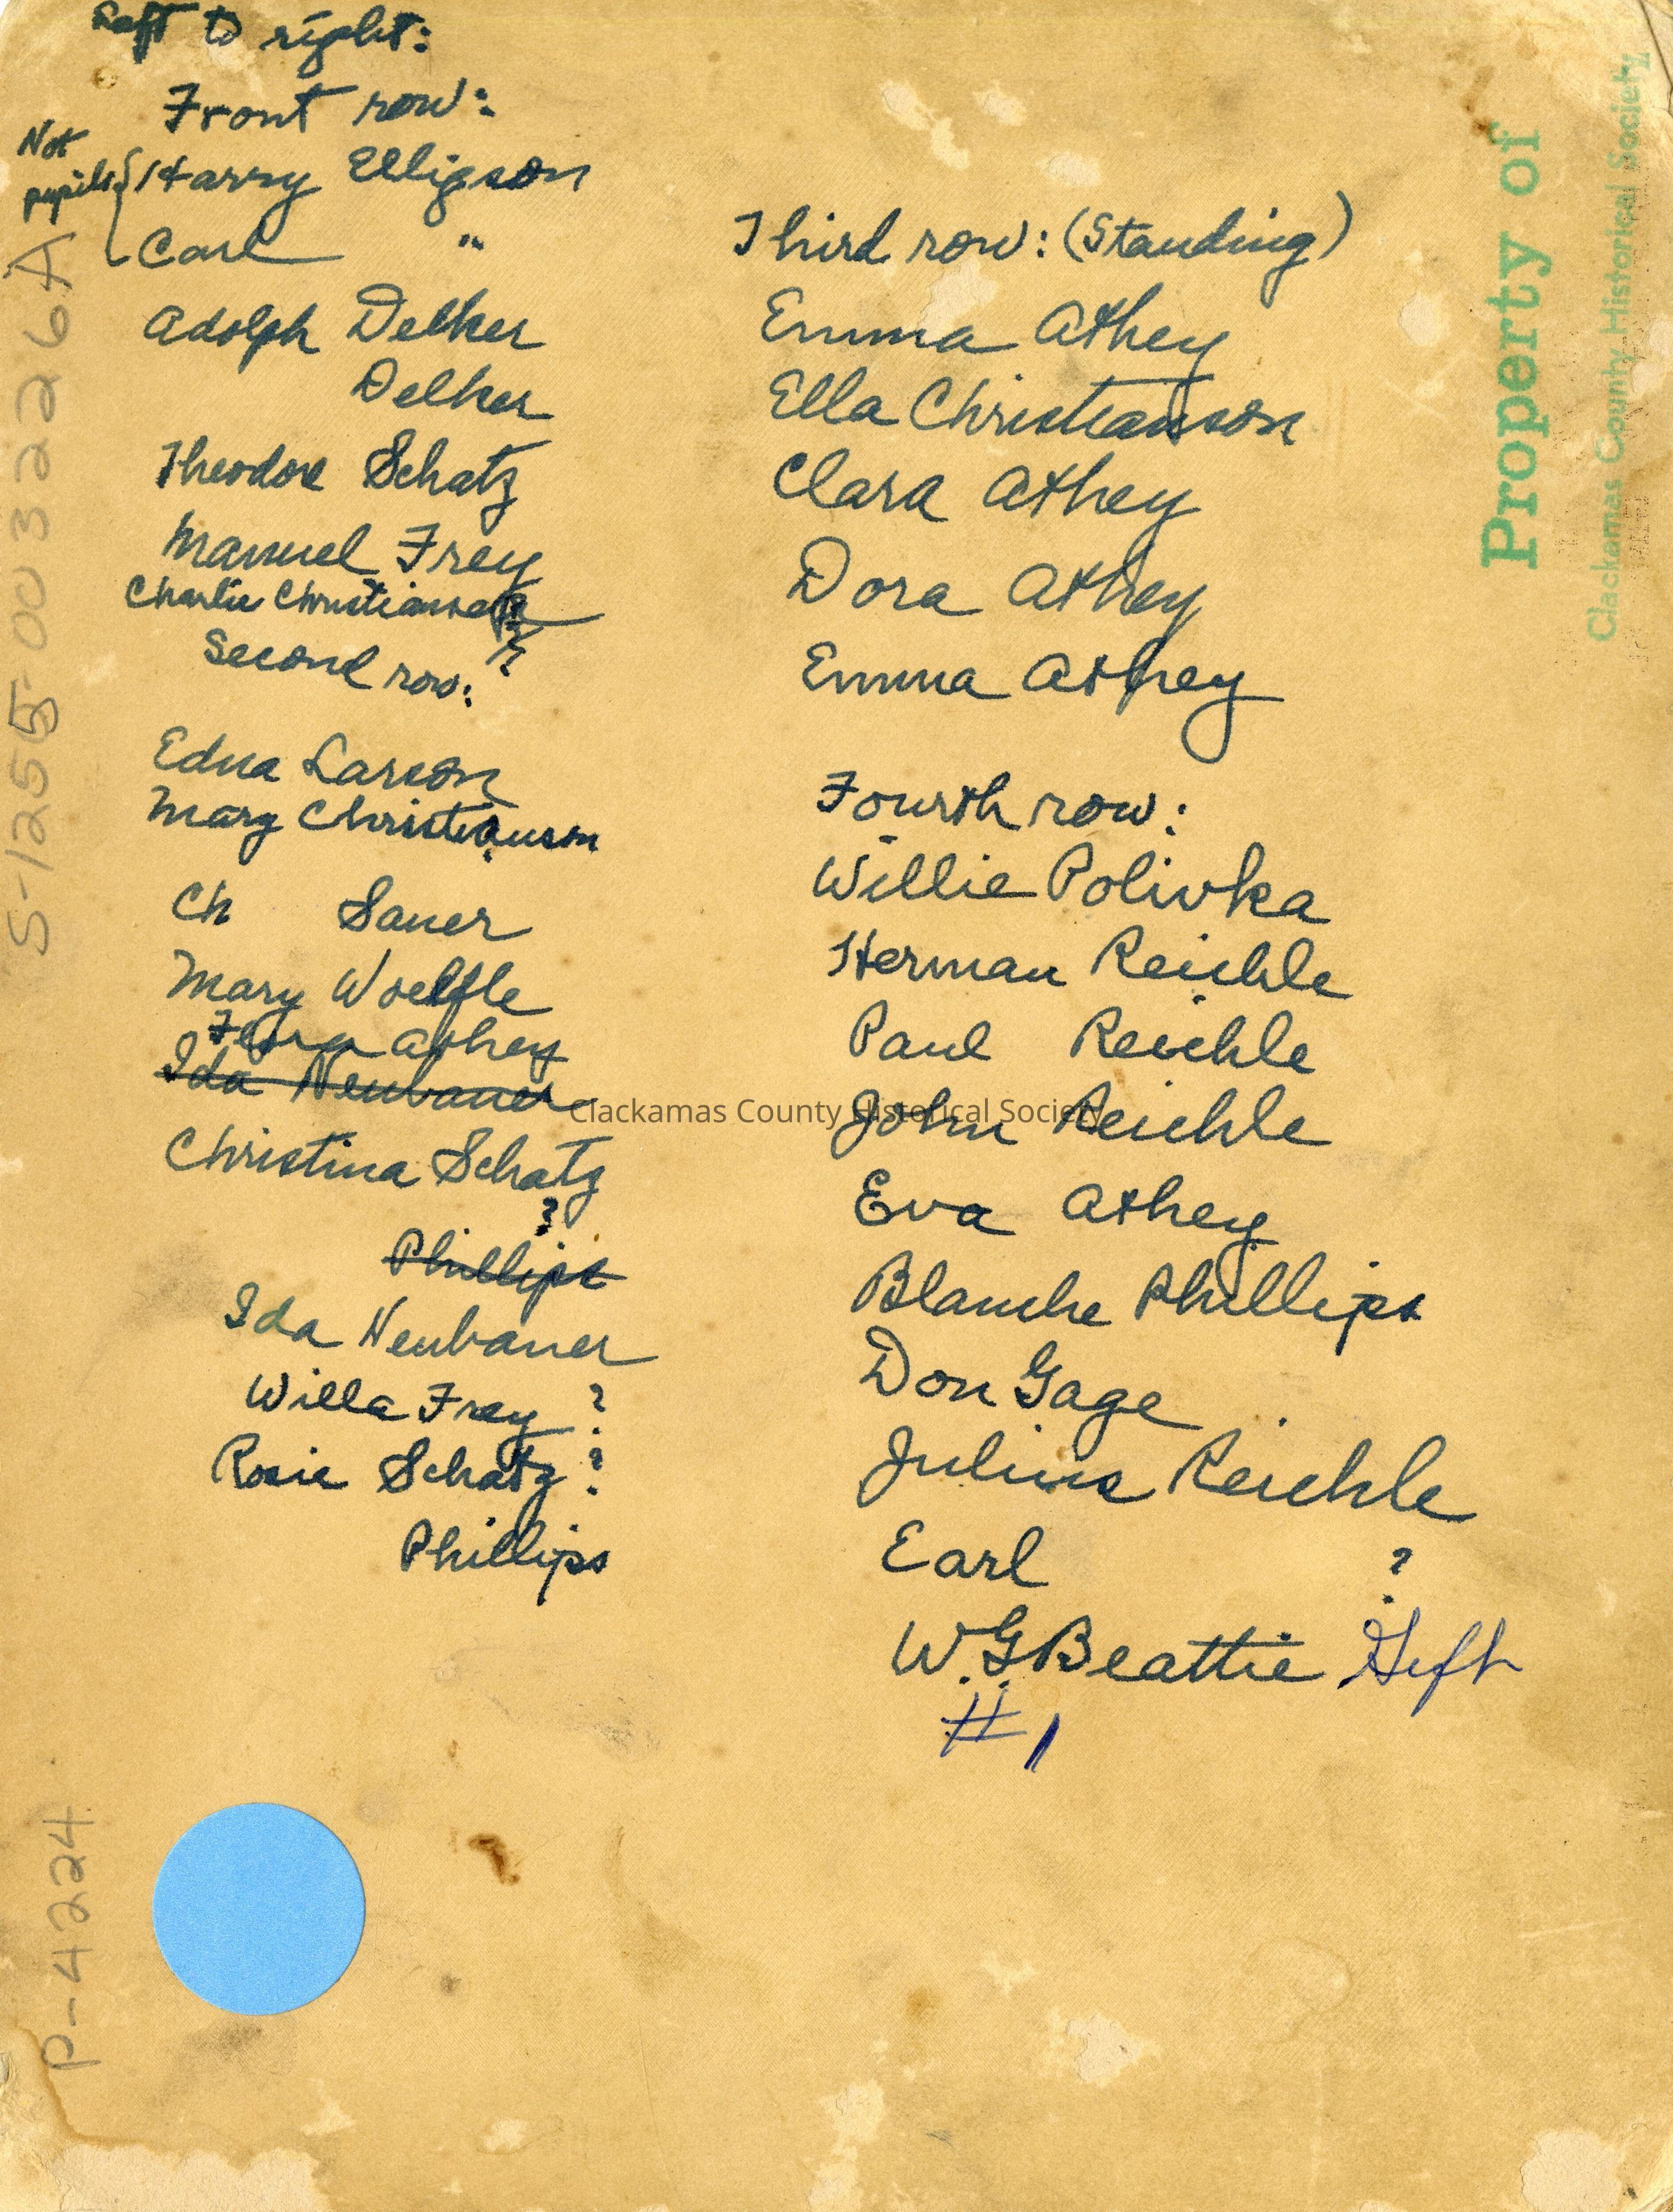 Left to right:
Front row:
Not pupils { Harry Elligson
Carl "
Adolph Delker
Delker
Theodore Schatz
Manuel Frey
Charlie Christianson ?
Second row:
Edna Larson
Mary Christianson
Ch Sauer
Mary Woelfle
Athey
Ida Neubauer
Christina Schatz
?
Phillips
Ida Neubauer
Willa Frey ?
Rosie Schatz ?
Phillips
Third row: (Standing)
Emma Athey
Ella Christianson
Clara Athey
Dora Athey
Emma Athey
Fourth row:
Willie Polivka
Herman Reichle
Paul Reichle
John Reichle
Eva Athey
Blanche Phillips
Don Gage
Julius Reichle
Earl ?
W.G. Beattie Gift
#1
Property of
Clackamas County Historical Society
S-1255-003226A
P-4224
Clackamas County Historical Society